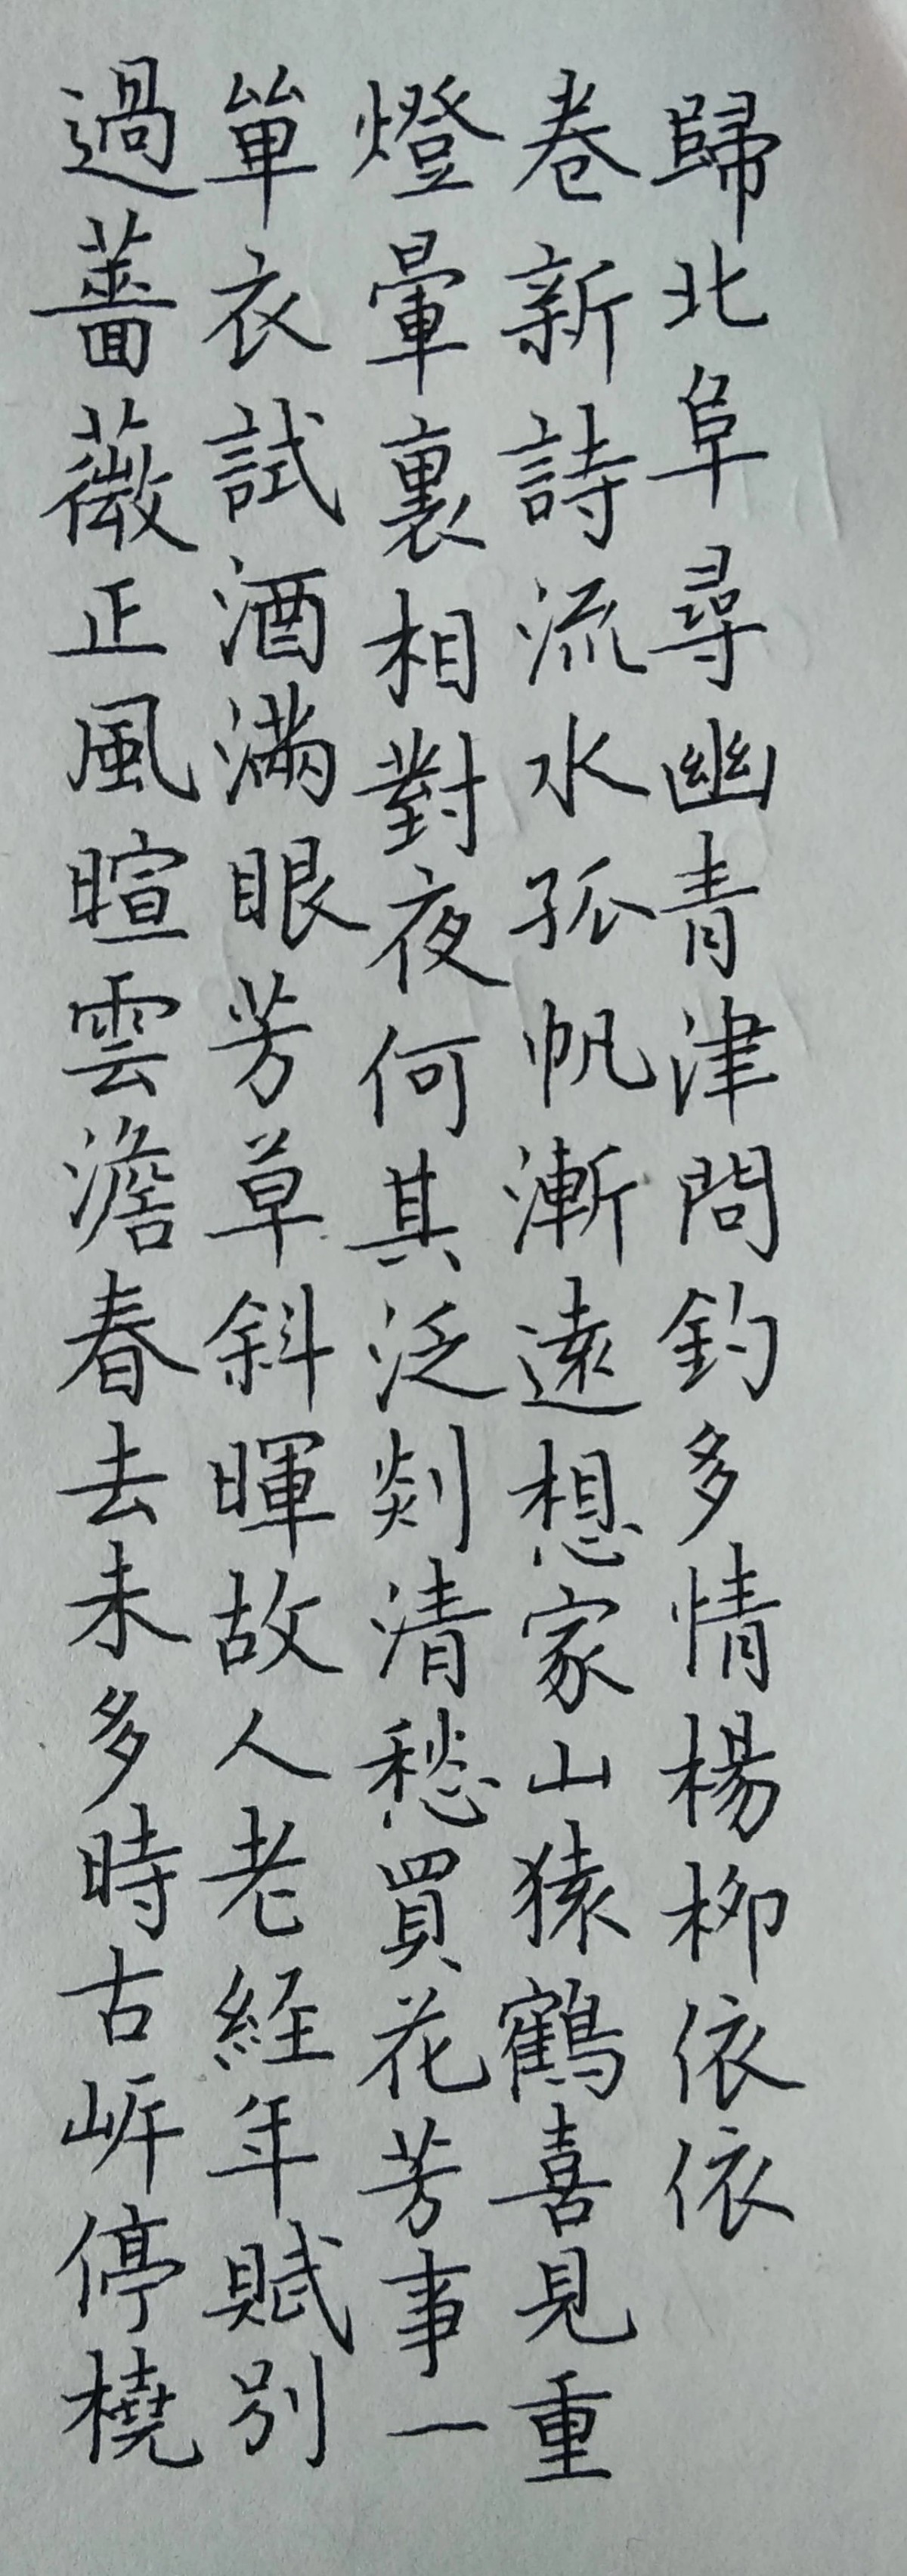 過薔薇正風暄雲澹春去未多時古岸停橈
單衣試酒滿眼芳草斜暉故人老経年賦別
燈暈裏相對夜何其泛剡清愁買花芳事一
卷新詩流水孤帆漸遠想家山猿鶴喜見重
歸北阜尋幽青津問釣多情楊柳依依